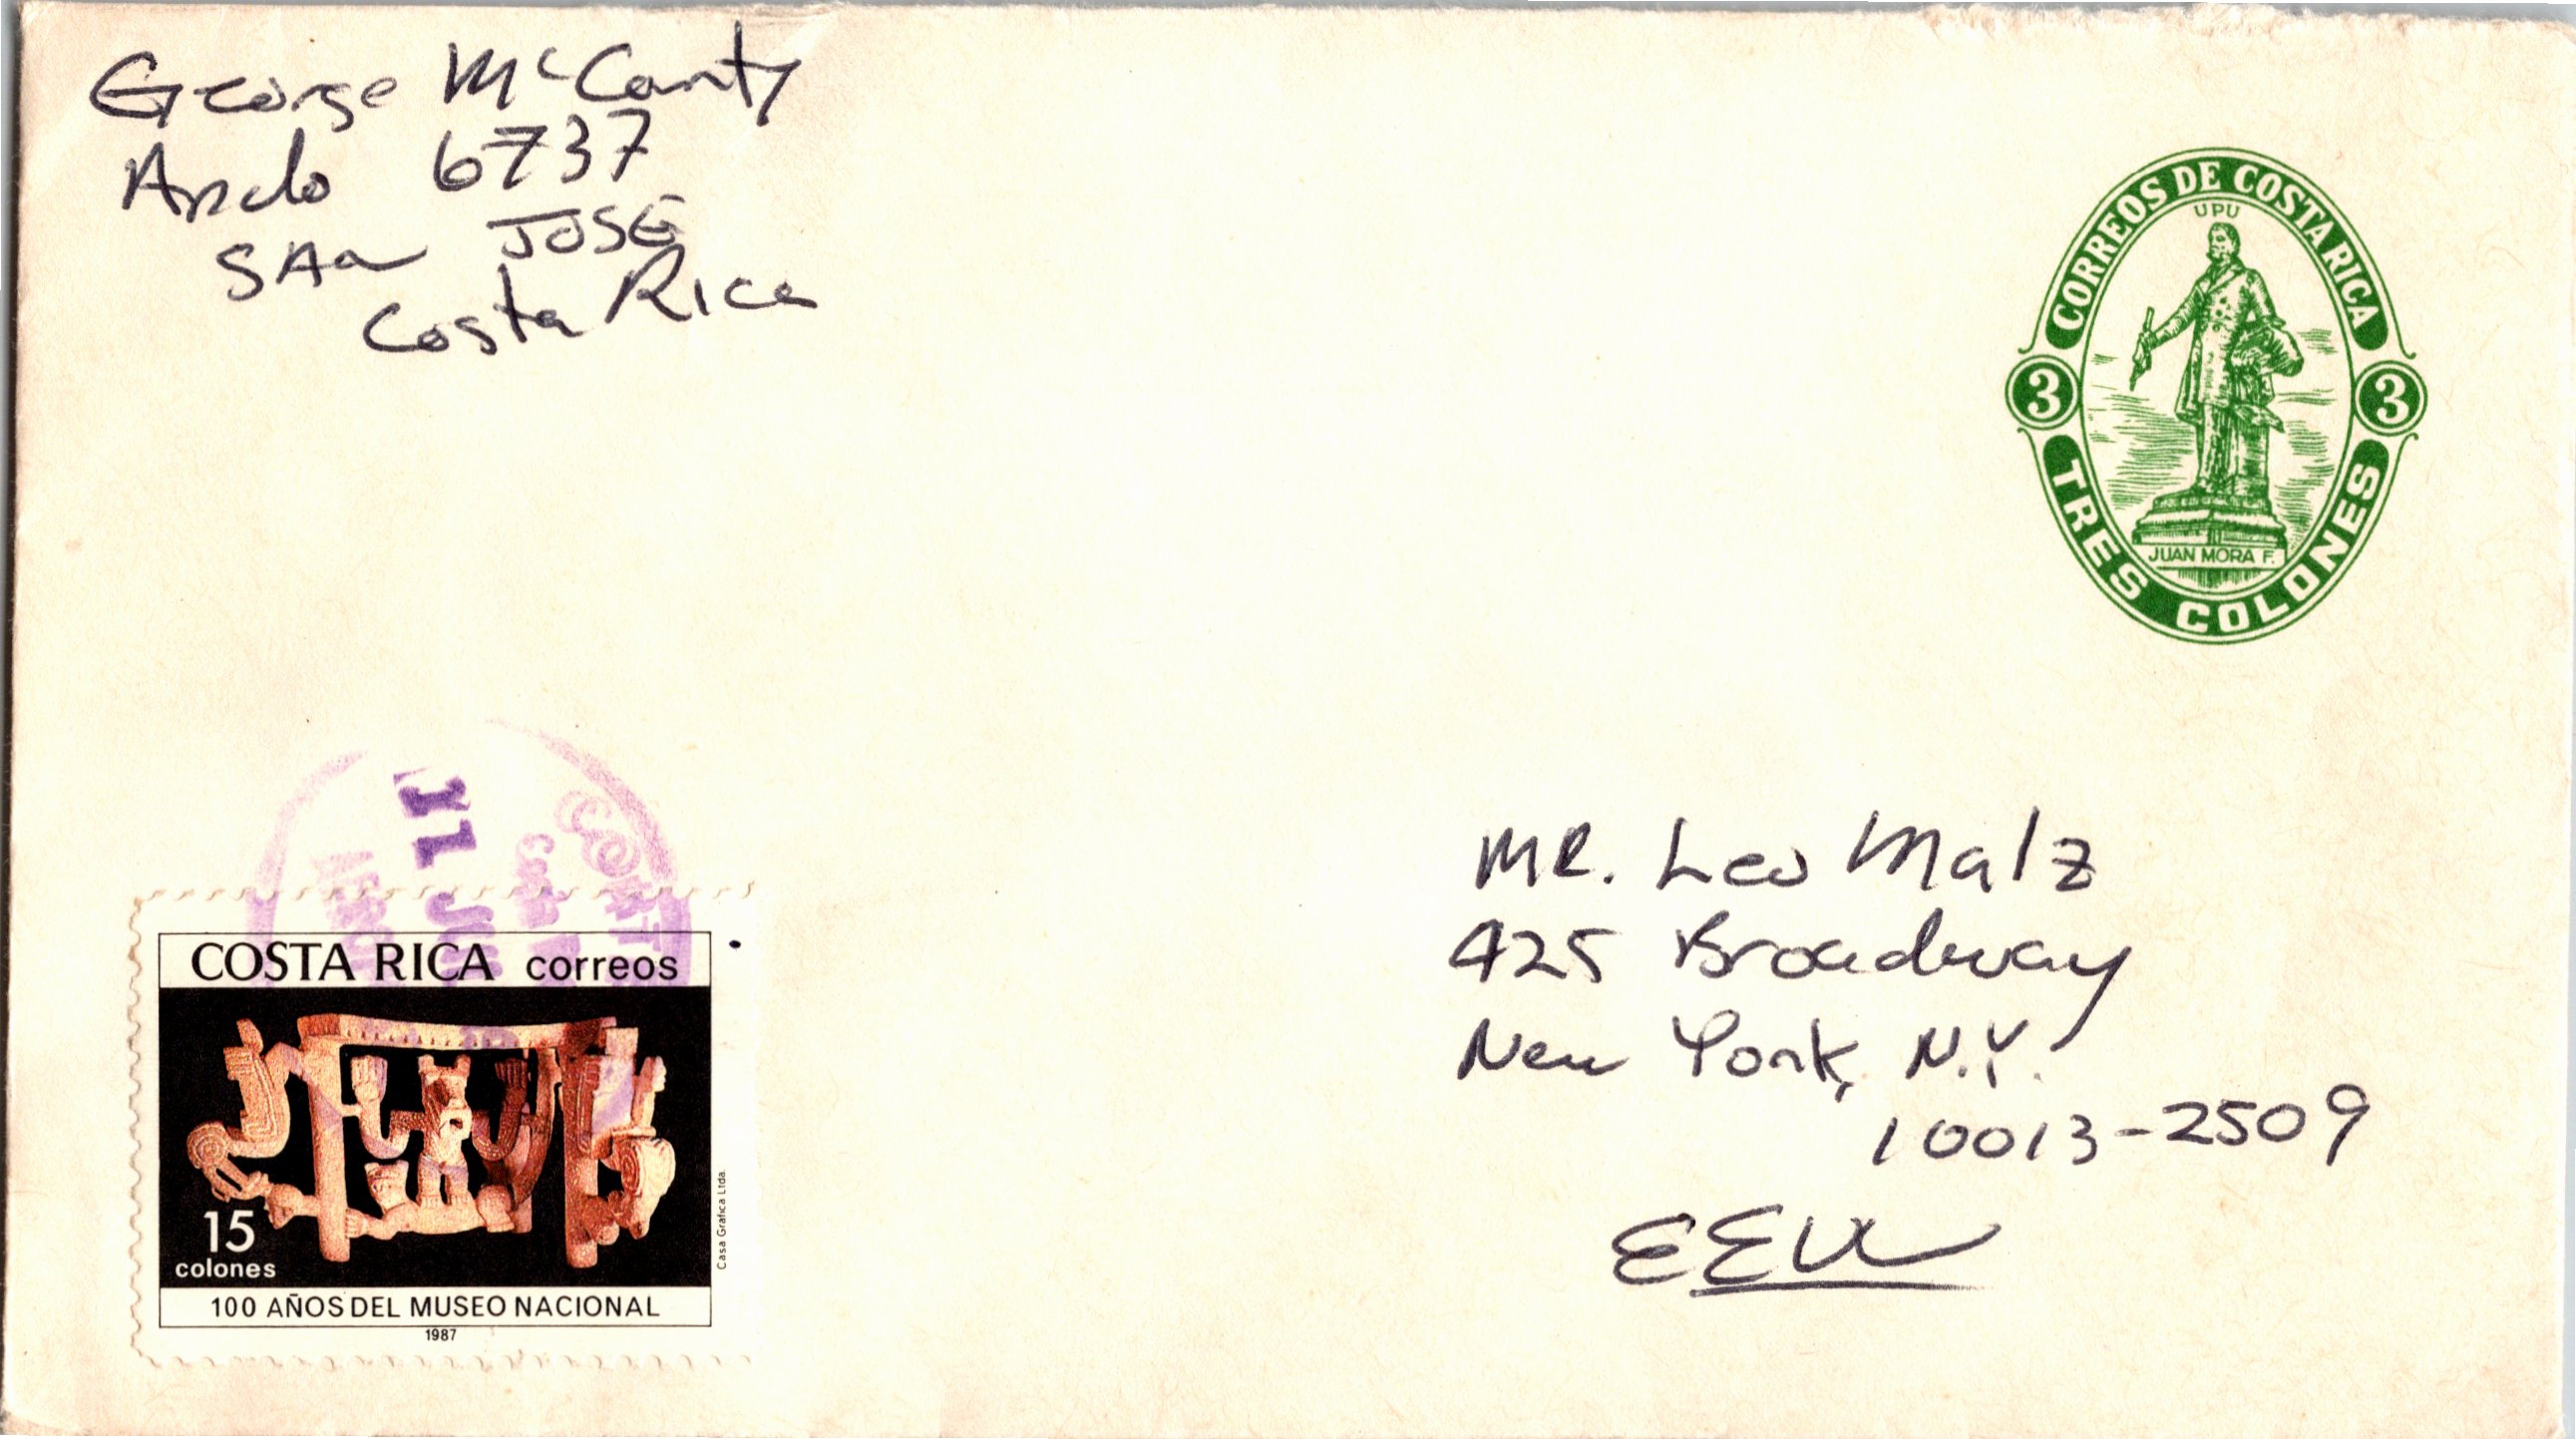 George McCarty
Apdo 6737
SAn JOSE
Costa Rica
CORREOS DE COSTA RICA
UPU
3 3
JUAN MORA F.
TRES COLONES
11 JUN
MR. Leo Malz
425 Broadway
New York, N.Y.
10013-2509
EEUU
COSTA RICA correos
15
colones
Casa Grafica Ltda.
100 AÑOS DEL MUSEO NACIONAL
1987